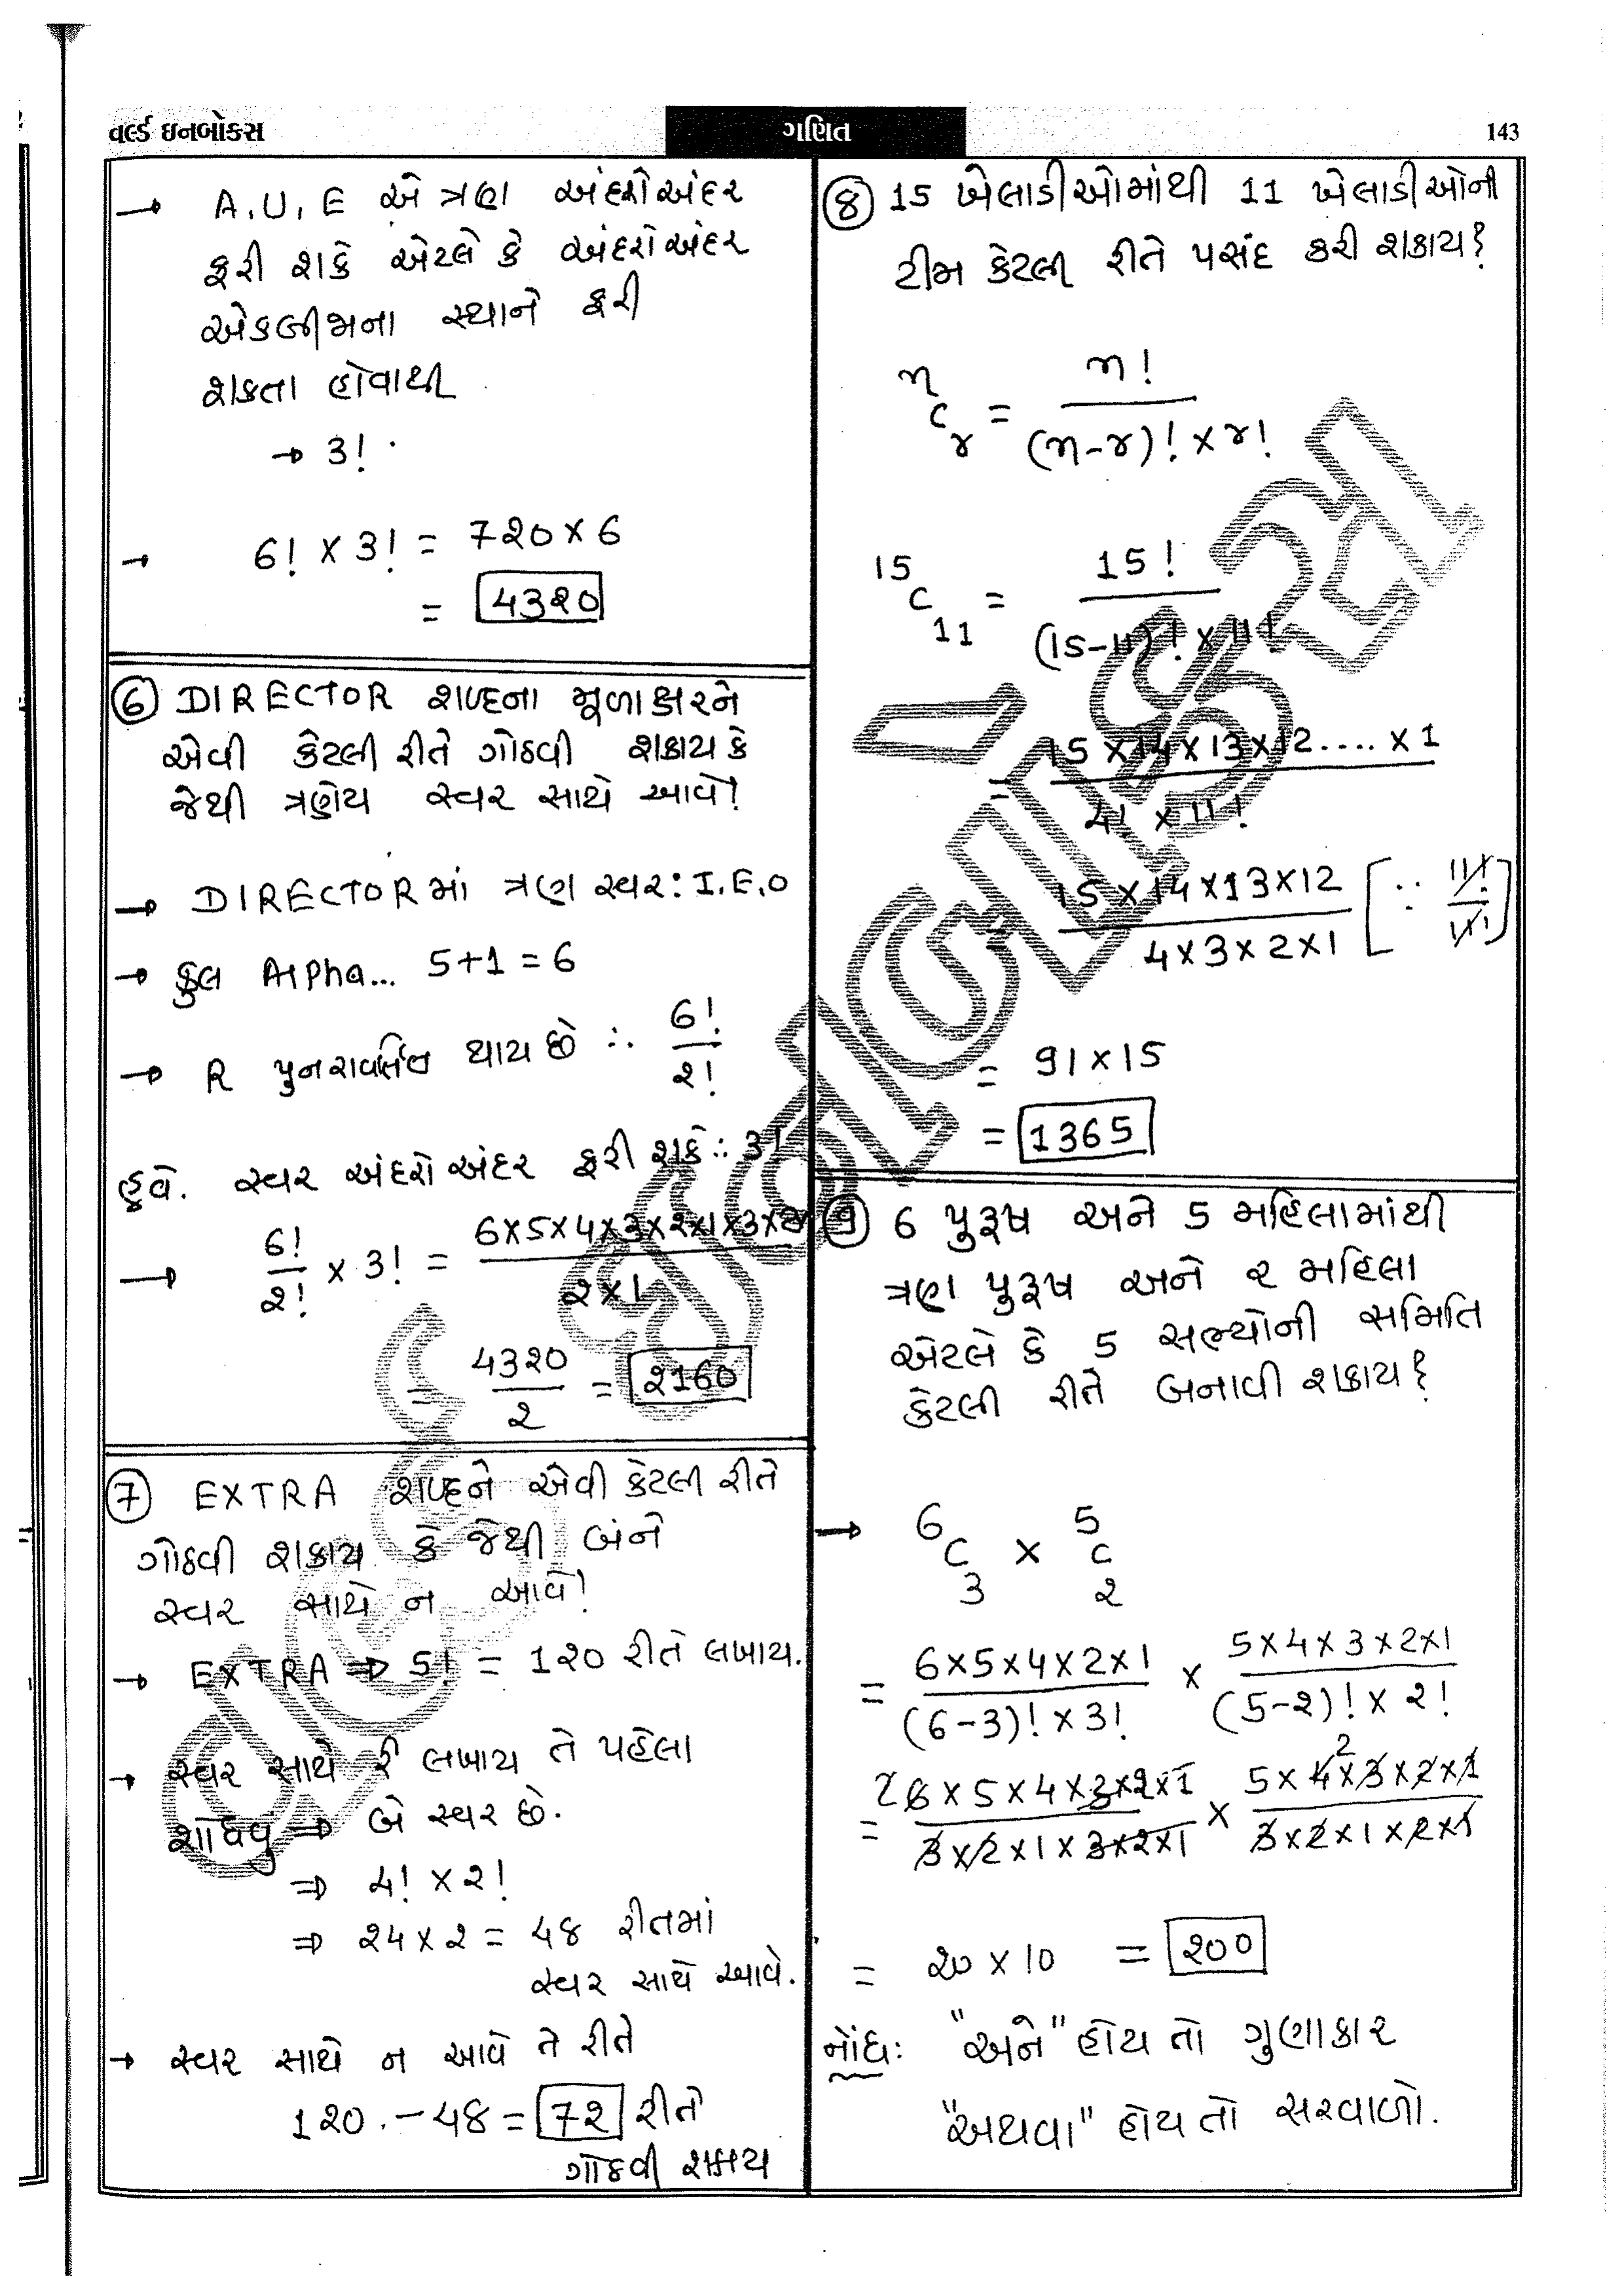 વર્લ્ડ ઇનબોકસ
ગણિત
143
→ A, U, E એ ત્રણ અંદરોઅંદર
ફરી શકે એટલે કે અંદરોઅંદર
એકબીજાના સ્થાને ફરી
શકતા હોવાથી
→ 3!
→ 6! × 3! = 7૨0 × 6
= 43૨0
⑥ DIRECTOR શબ્દના મૂળાક્ષરને
એવી કેટલી રીતે ગોઠવી શકાય કે
જેથી ત્રણેય સ્વર સાથે આવે?
→ DIRECTOR માં ત્રણ સ્વર: I.E.O
→ કુલ Alpha... 5+1 = 6
→ R પુનરાવર્તિત થાય છે ∴ 6!/૨!
હવે. સ્વર અંદરોઅંદર ફરી શકે ∴ 3!
→ 6!/૨! × 3! = 6×5×4×3×૨×1×3×૨/૨×1
= 43૨0/૨ = ૨160
⑦ EXTRA શબ્દને એવી કેટલી રીતે
ગોઠવી શકાય કે જેથી બંને
સ્વર સાથે ન આવે?
→ EXTRA ⇒ 5! = 1૨0 રીતે લખાય.
→ સ્વર સાથે રી લખાય તે પહેલા
શોધવુ ⇒ બે સ્વર છે.
⇒ 4! × ૨!
⇒ ૨4 × ૨ = 48 રીતમાં
સ્વર સાથે આવે.
→ સ્વર સાથે ન આવે તે રીતે
1૨0 - 48 = 7૨ રીતે
ગોઠવી શકાય
⑧ 15 ખેલાડીઓમાંથી 11 ખેલાડીઓની
ટીમ કેટલી રીતે પસંદ કરી શકાય?
ⁿCᵣ = n!/(n-r)! × r!
¹⁵C₁₁ = 15!/(15-11)! × 11!
= 15×14×13×12....×1/4! × 11!
= 15×14×13×12/4×3×2×1 [∵ 11!/11!]
= 91 × 15
= 1365
⑨ 6 પુરૂષ અને 5 મહિલામાંથી
ત્રણ પુરૂષ અને ૨ મહિલા
એટલે કે 5 સભ્યોની સમિતિ
કેટલી રીતે બનાવી શકાય?
→ ⁶C₃ × ⁵C₂
= 6×5×4×2×1/(6-3)! × 3! × 5×4×3×2×1/(5-૨)! × ૨!
= 2 6×5×4×3×2×1/3×2×1×3×2×1 × 5×4²×3×2×1/3×2×1×2×1
= ૨0 × 10 = ૨00
નોંધ: "અને" હોય તો ગુણાકાર
"અથવા" હોય તો સરવાળો.